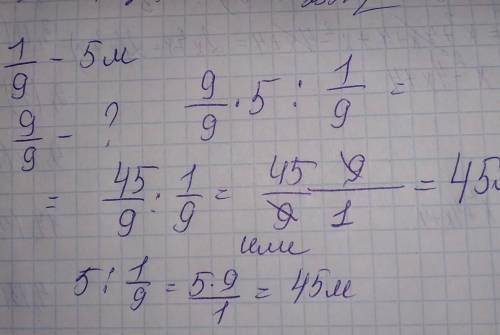 1/9 - 5м
9/9 - ? 9/9 · 5 : 1/9 =
= 45/9 : 1/9 = 45 9/9 1 = 45
или
5 : 1/9 = 5·9/1 = 45м